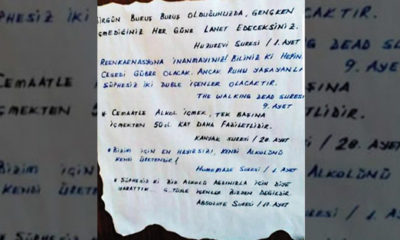 Ürgün Buruş Buruş Olduğunuzda, Gençken
İçmediğiniz Her Güne Lanet Edeceksiniz.
Huzurevi Suresi / 1. Ayet
Reenkarnasyona İnanmayınız! Biliniz ki Hepin
Cesedi Gübre Olacak. Ancak Ruhu Yaşayanla
Şüphesiz İki Duble İçenler Olacaktır.
The Walking Dead Suresi
9. Ayet
* Cemaatle Alkol İçmek, Tek Başına
İçmekten 50cl Kat Daha Faziletlidir.
Kanyak Suresi / 20. Ayet
* Bizim İçin En Hayırlısı, Kendi Alkolünü
Kendi Üretendir!
Suresi / 1. Ayet
* Şüphesiz ki Biz Alkolü Ağzınızla İçin Diye
Yarattık. İçenler Bizden Değildir.
Absolute Suresi / 17 Ayet